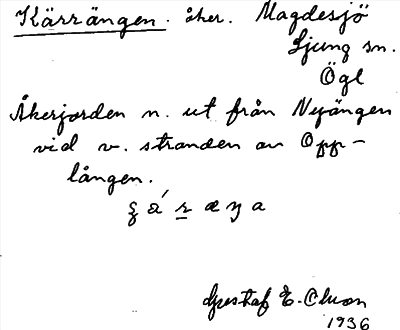 Kärrängen. åker. Magdesjö
Ljung sn.
Ögl
Åkerjorden n. ut från Nyängen
vid v. stranden av Opp-
lången.
Gustaf E. Olsson
1936